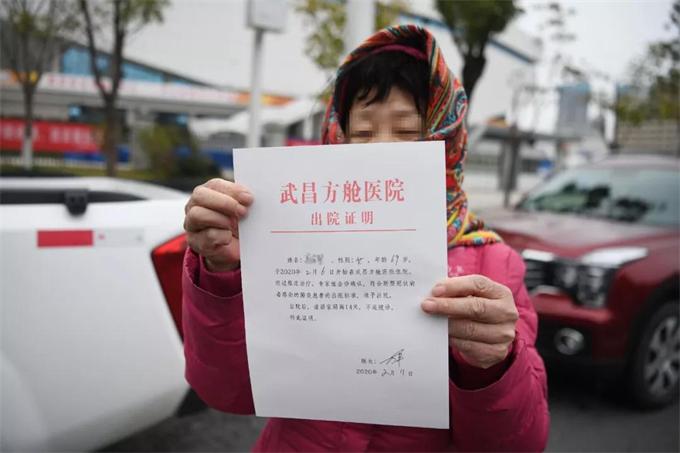 武昌方舱医院
出院证明
姓名： ，性别：女，年龄 岁，
于2020年2月6日开始在武昌方舱医院，
经过推定治疗，专家组会诊确认，符合新型冠状病
毒感染的肺炎患者的出院标准，准予出院。
出院后，请居家隔离14天，不适随诊。
特此证明。
院长：
2020年2月11日